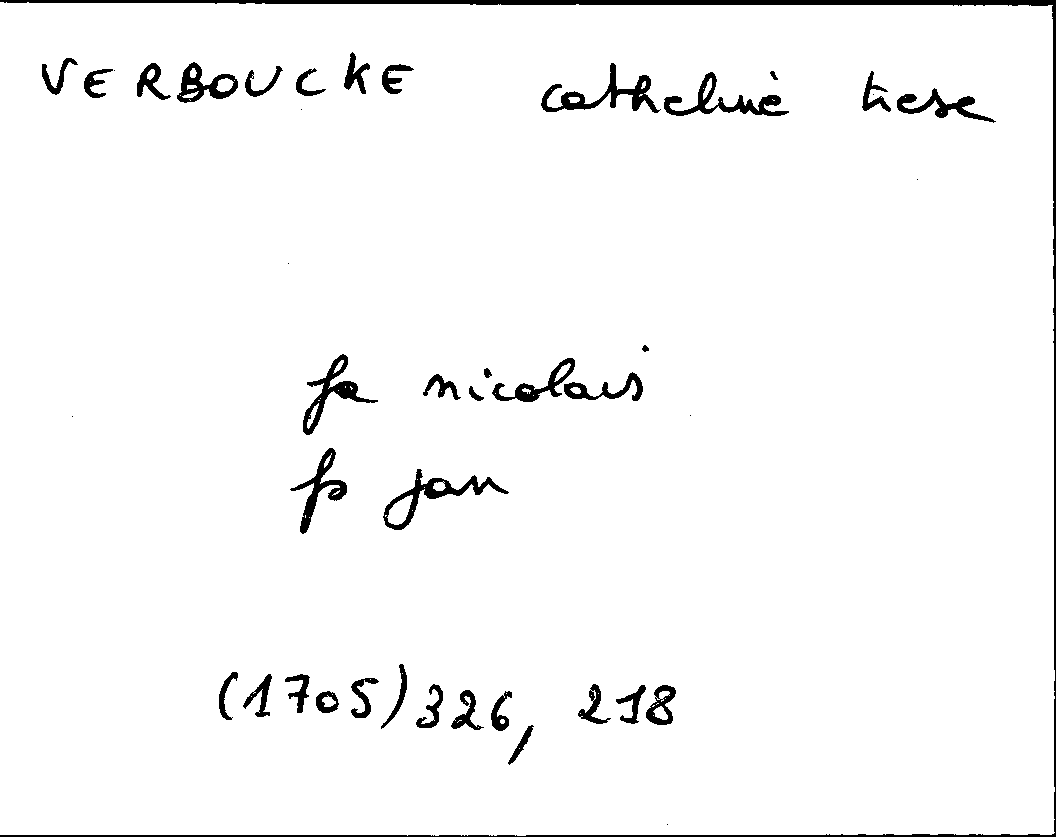 VERBOUCKE catheline tiese
fa nicolais
fs jan
(1705) 326, 218